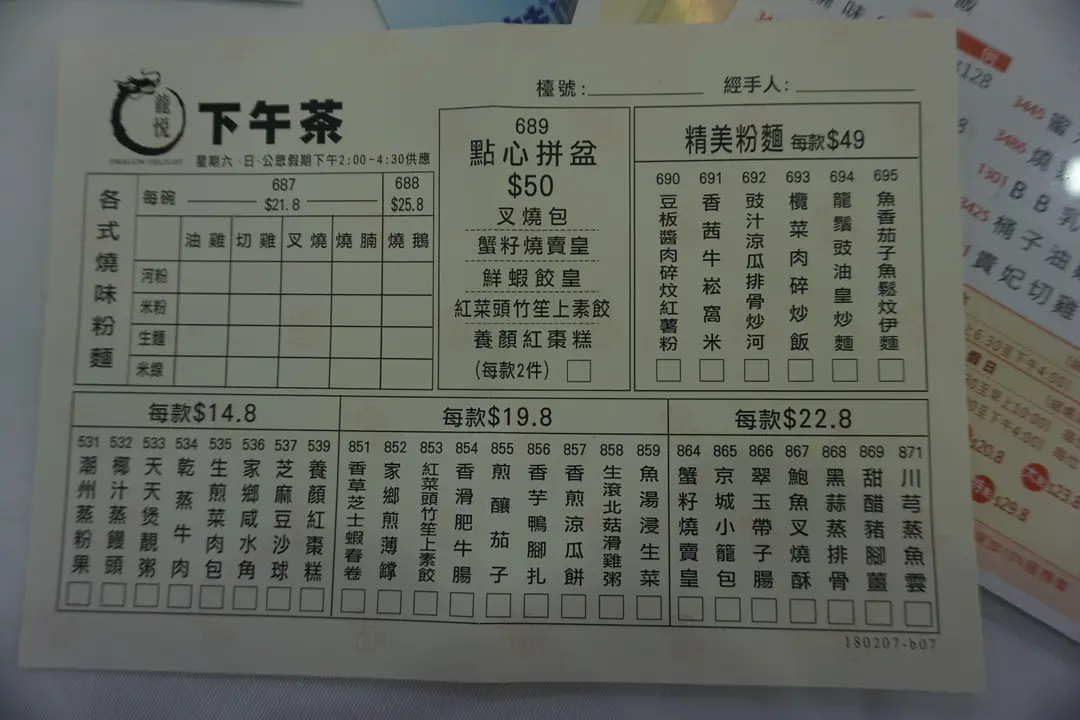 龍悦
DRAGON DELIGHT
下午茶
星期六·日·公眾假期下午2:00-4:30供應
檯號:
經手人:
各式燒味粉麵
每碗
687
$21.8
688
$25.8
油雞
切雞
叉燒
燒腩
燒鵝
河粉
米粉
生麵
米線
689
點心拼盆
$50
叉燒包
蟹籽燒賣皇
鮮蝦餃皇
紅菜頭竹笙上素餃
養顏紅棗糕
(每款2件)
精美粉麵 每款$49
690 豆板醬肉碎炆紅薯粉
691 香茜牛崧窩米
692 豉汁涼瓜排骨炒河
693 欖菜肉碎炒飯
694 龍鬚豉油皇炒麵
695 魚香茄子魚鬆炆伊麵
每款$14.8
531 潮州蒸粉果
532 椰汁蒸饅頭
533 天天煲靚粥
534 乾蒸牛肉
535 生煎菜肉包
536 家鄉咸水角
537 芝麻豆沙球
539 養顏紅棗糕
每款$19.8
851 香草芝士蝦春卷
852 家鄉煎薄罉
853 紅菜頭竹笙上素餃
854 香滑肥牛腸
855 煎釀茄子
856 香芋鴨腳扎
857 香煎涼瓜餅
858 生滾北菇滑雞粥
859 魚湯浸生菜
每款$22.8
864 蟹籽燒賣皇
865 京城小籠包
866 翠玉帶子腸
867 鮑魚叉燒酥
868 黑蒜蒸排骨
869 甜醋豬腳薑
871 川芎蒸魚雲
180207-b07
例
$128
3445
3486 燒
1301 BB乳
3425 桶子油
貴妃切雞
6:30至下午4:00)
假日
至早上10:00)
至下午4:00)
$20.8
$23.8
$29.8